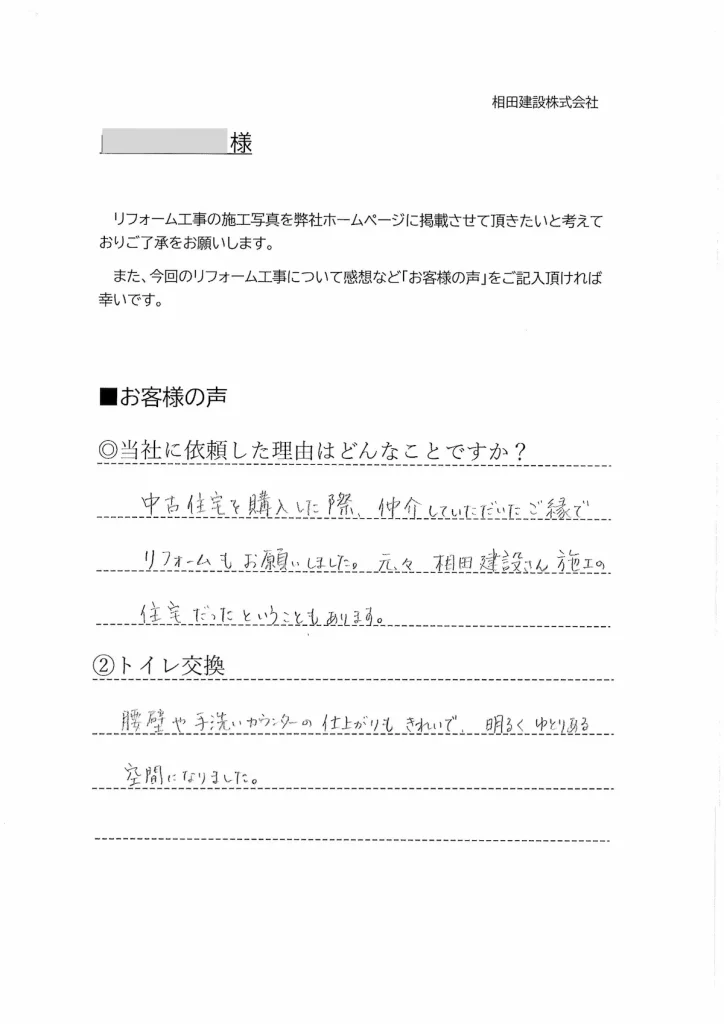 相田建設株式会社
様
リフォーム工事の施工写真を弊社ホームページに掲載させて頂きたいと考えて
おりご了承をお願いします。
また、今回のリフォーム工事について感想など「お客様の声」をご記入頂ければ
幸いです。
■お客様の声
◎当社に依頼した理由はどんなことですか？
中古住宅を購入した際、仲介していただいたご縁で
リフォームもお願いしました。元々 相田建設さん施工の
住宅だったということもあります。
②トイレ交換
腰壁や手洗いカウンターの仕上がりもきれいで、明るくゆとりある
空間になりました。